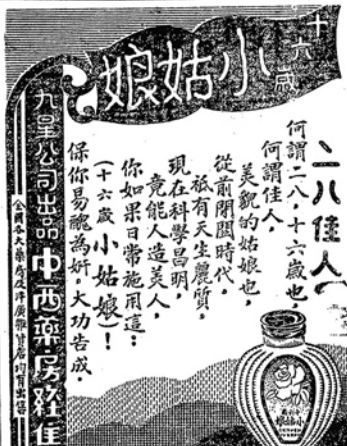 十六歲
小姑娘
二八佳人
何謂二八，十六歲也，
何謂佳人，
美貌的姑娘也，
從前閉關時代，
祇有天生麗質，
現在科學昌明，
竟能人造美人，
你如果日常施用這：
（十六歲小姑娘）！
保你易醜為妍，大功告成。
九星公司出品 中西藥房經售
全國各大藥房及洋廣雜貨店均有出售